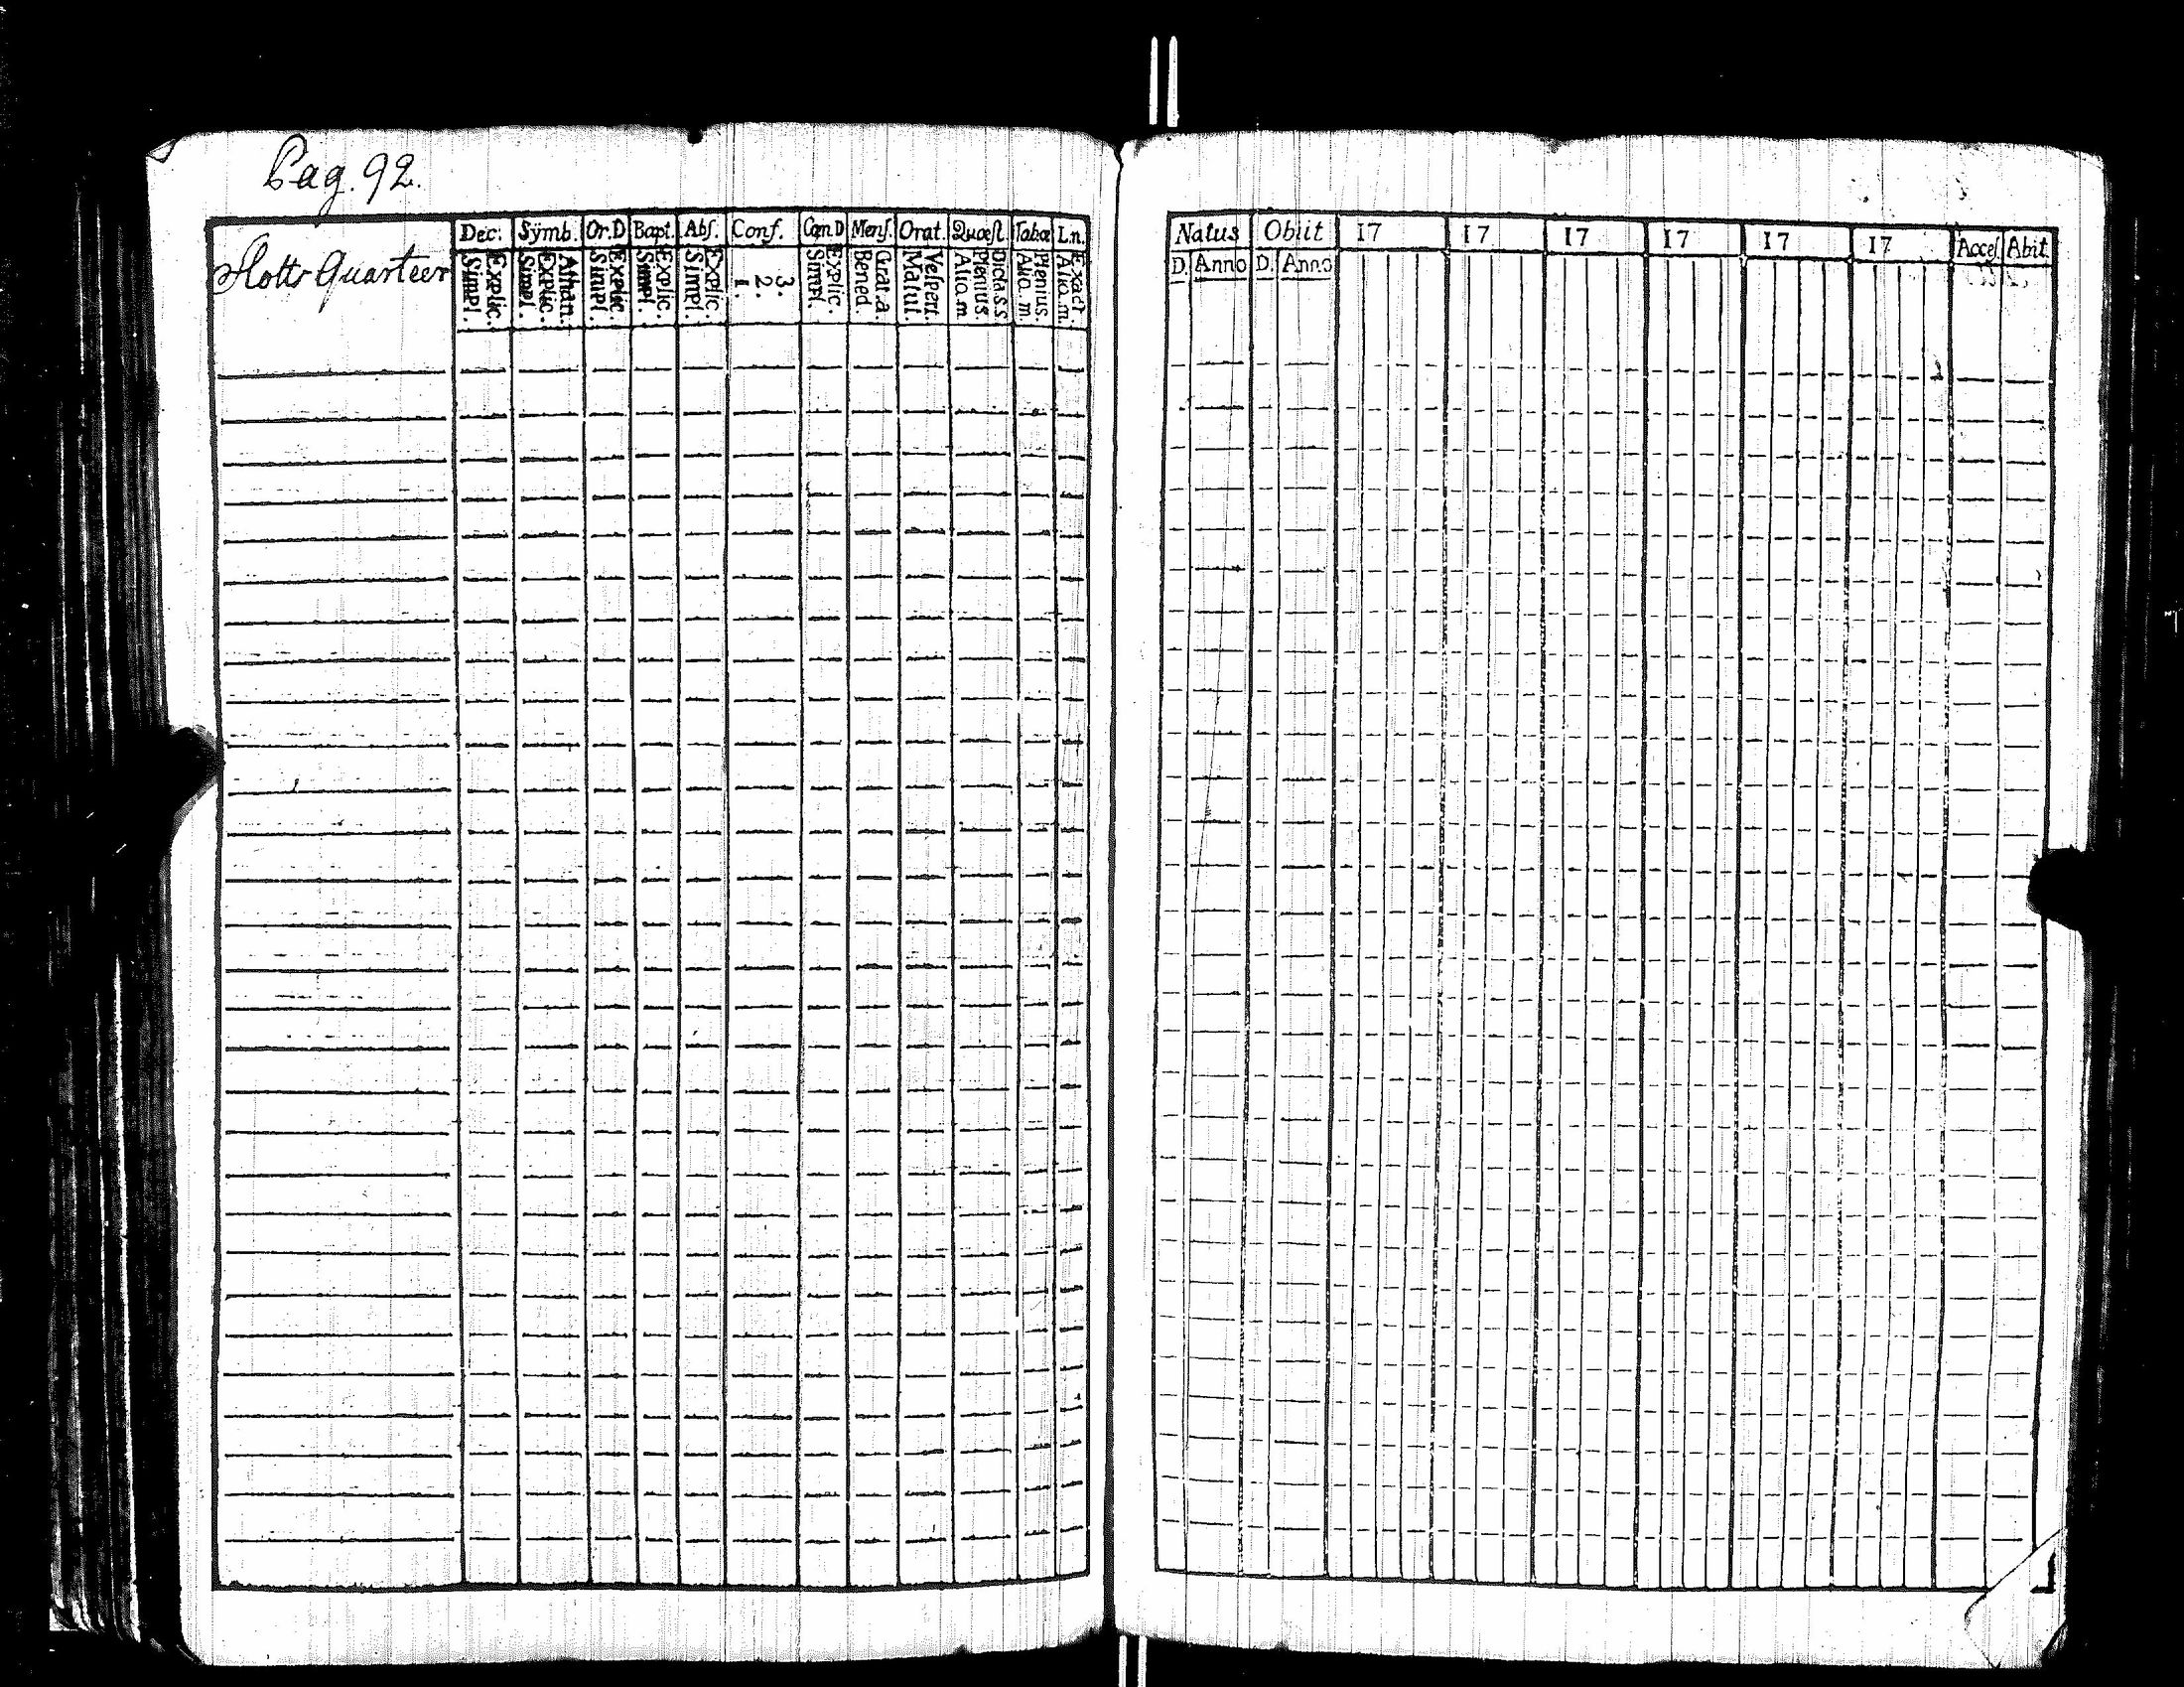 Pag. 92.
Slotts Quarteer
Dec. Sÿmb. Or.D Bapt. Abſ. Conf. Cœn.D Menſ. Orat. Quæſt. Tabœ L.n.
Explic. Simpl.
Athan. Explic. Simpl.
Explic. Simpl.
Explic. Simpl.
Explic. Simpl.
3. 2. 1.
Explic. Simpl.
Grat.a. Bened.
Veſpert. Matut.
Dicta.s.s. Plenius. Alio.m
Plenius. Alio.m.
Exact. Alio.m.
Natus Obiit 17 17 17 17 17 17 Acceſ. Abit.
D. Anno D. Anno